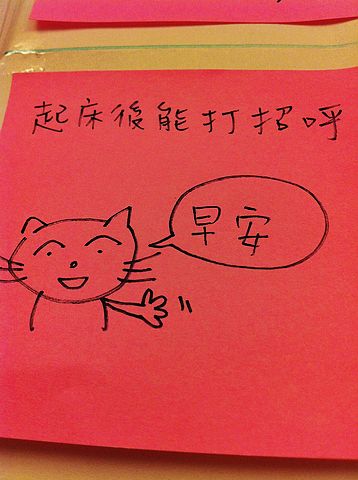 起床後能打招呼
早安